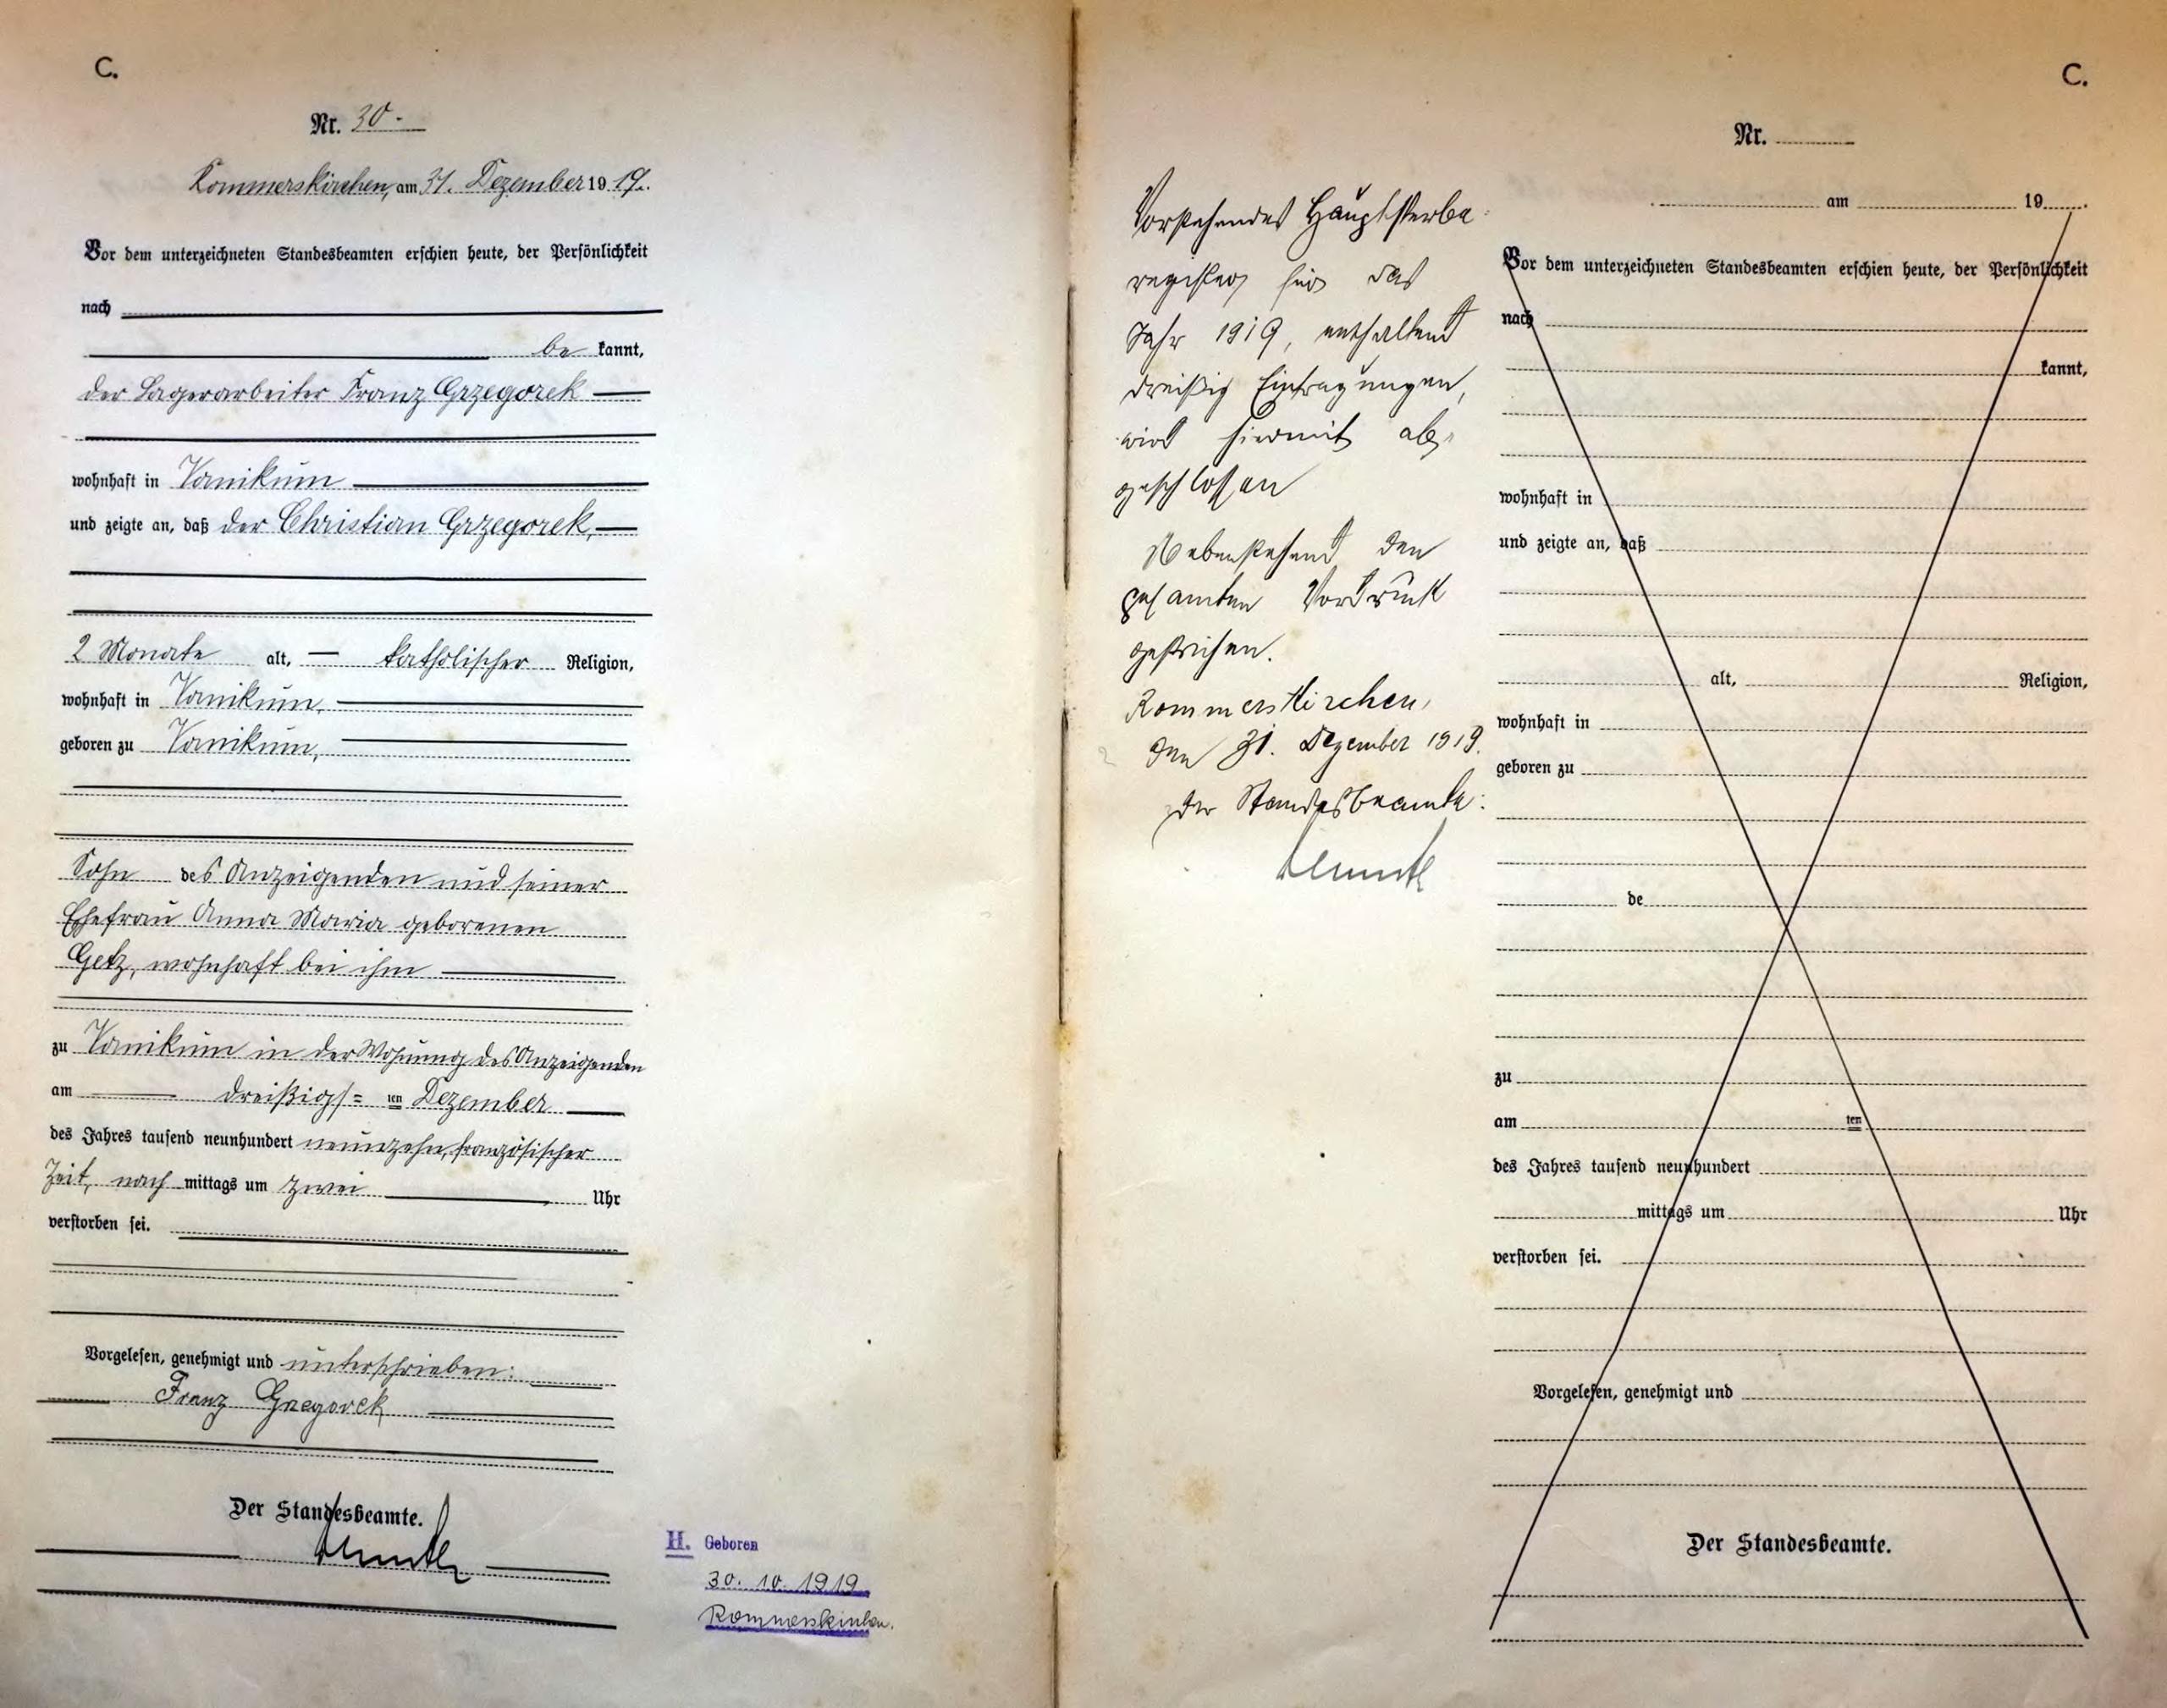 C.
Nr. 30.
Rommerskirchen, am 31. Dezember 1919.
Vor dem unterzeichneten Standesbeamten erschien heute, der Persönlichkeit
nach
be kannt,
der Lagerarbeiter Franz Grzegorek
wohnhaft in Vanikum
und zeigte an, daß der Christian Grzegorek,
2 Monate alt, katholischer Religion,
wohnhaft in Vanikum,
geboren zu Vanikum,
Sohn des Anzeigenden und seiner
Ehefrau Anna Maria geborenen
Getz, wohnhaft bei ihm
zu Vanikum in der Wohnung des Anzeigenden
am dreißigs=ten Dezember
des Jahres tausend neunhundert neunzehn, französischer
Zeit, nach mittags um zwei Uhr
verstorben sei.
Vorgelesen, genehmigt und unterschrieben:
Franz Gregorek
Der Standesbeamte.
H. Geboren
30. 10. 1919
Rommerskirchen.
Vorstehendes Hauptsterbe-
register für das
Jahr 1919, enthaltend
dreißig Eintragungen,
wird hiermit ab-
geschlossen
Nebenstehend den
gesamten Vordruck
gestrichen.
Rommerskirchen,
den 31. Dezember 1919.
Der Standesbeamte:
C.
Nr.
am 19
Vor dem unterzeichneten Standesbeamten erschien heute, der Persönlichkeit
nach
kannt,
wohnhaft in
und zeigte an, daß
alt, Religion,
wohnhaft in
geboren zu
de
zu
am ten
des Jahres tausend neunhundert
mittags um Uhr
verstorben sei.
Vorgelesen, genehmigt und
Der Standesbeamte.